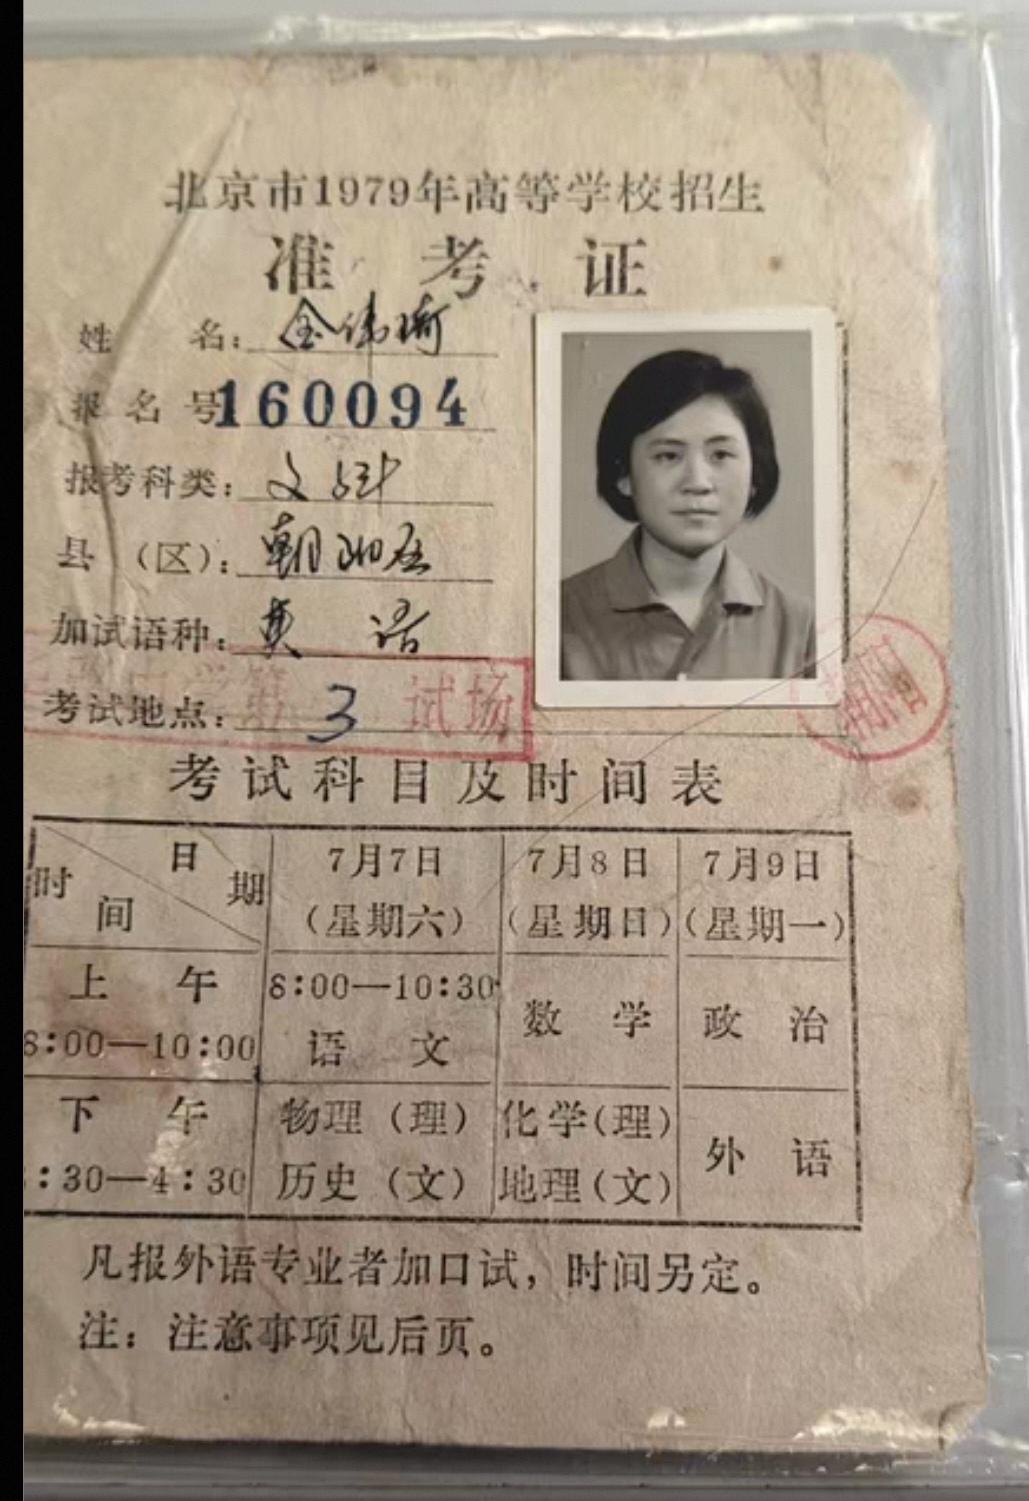 北京市1979年高等学校招生
准考证
姓名：金伟琦
报名号160094
报考科类：文科
县（区）：朝阳区
加试语种：英语
考试地点：第3试场
朝阳
考试科目及时间表
日期 时间 7月7日（星期六） 7月8日（星期日） 7月9日（星期一）
上午 8:00—10:00 8:00—10:30 语文 数学 政治
下午 :30—4:30 物理（理） 历史（文） 化学（理） 地理（文） 外语
凡报外语专业者加口试，时间另定。
注：注意事项见后页。